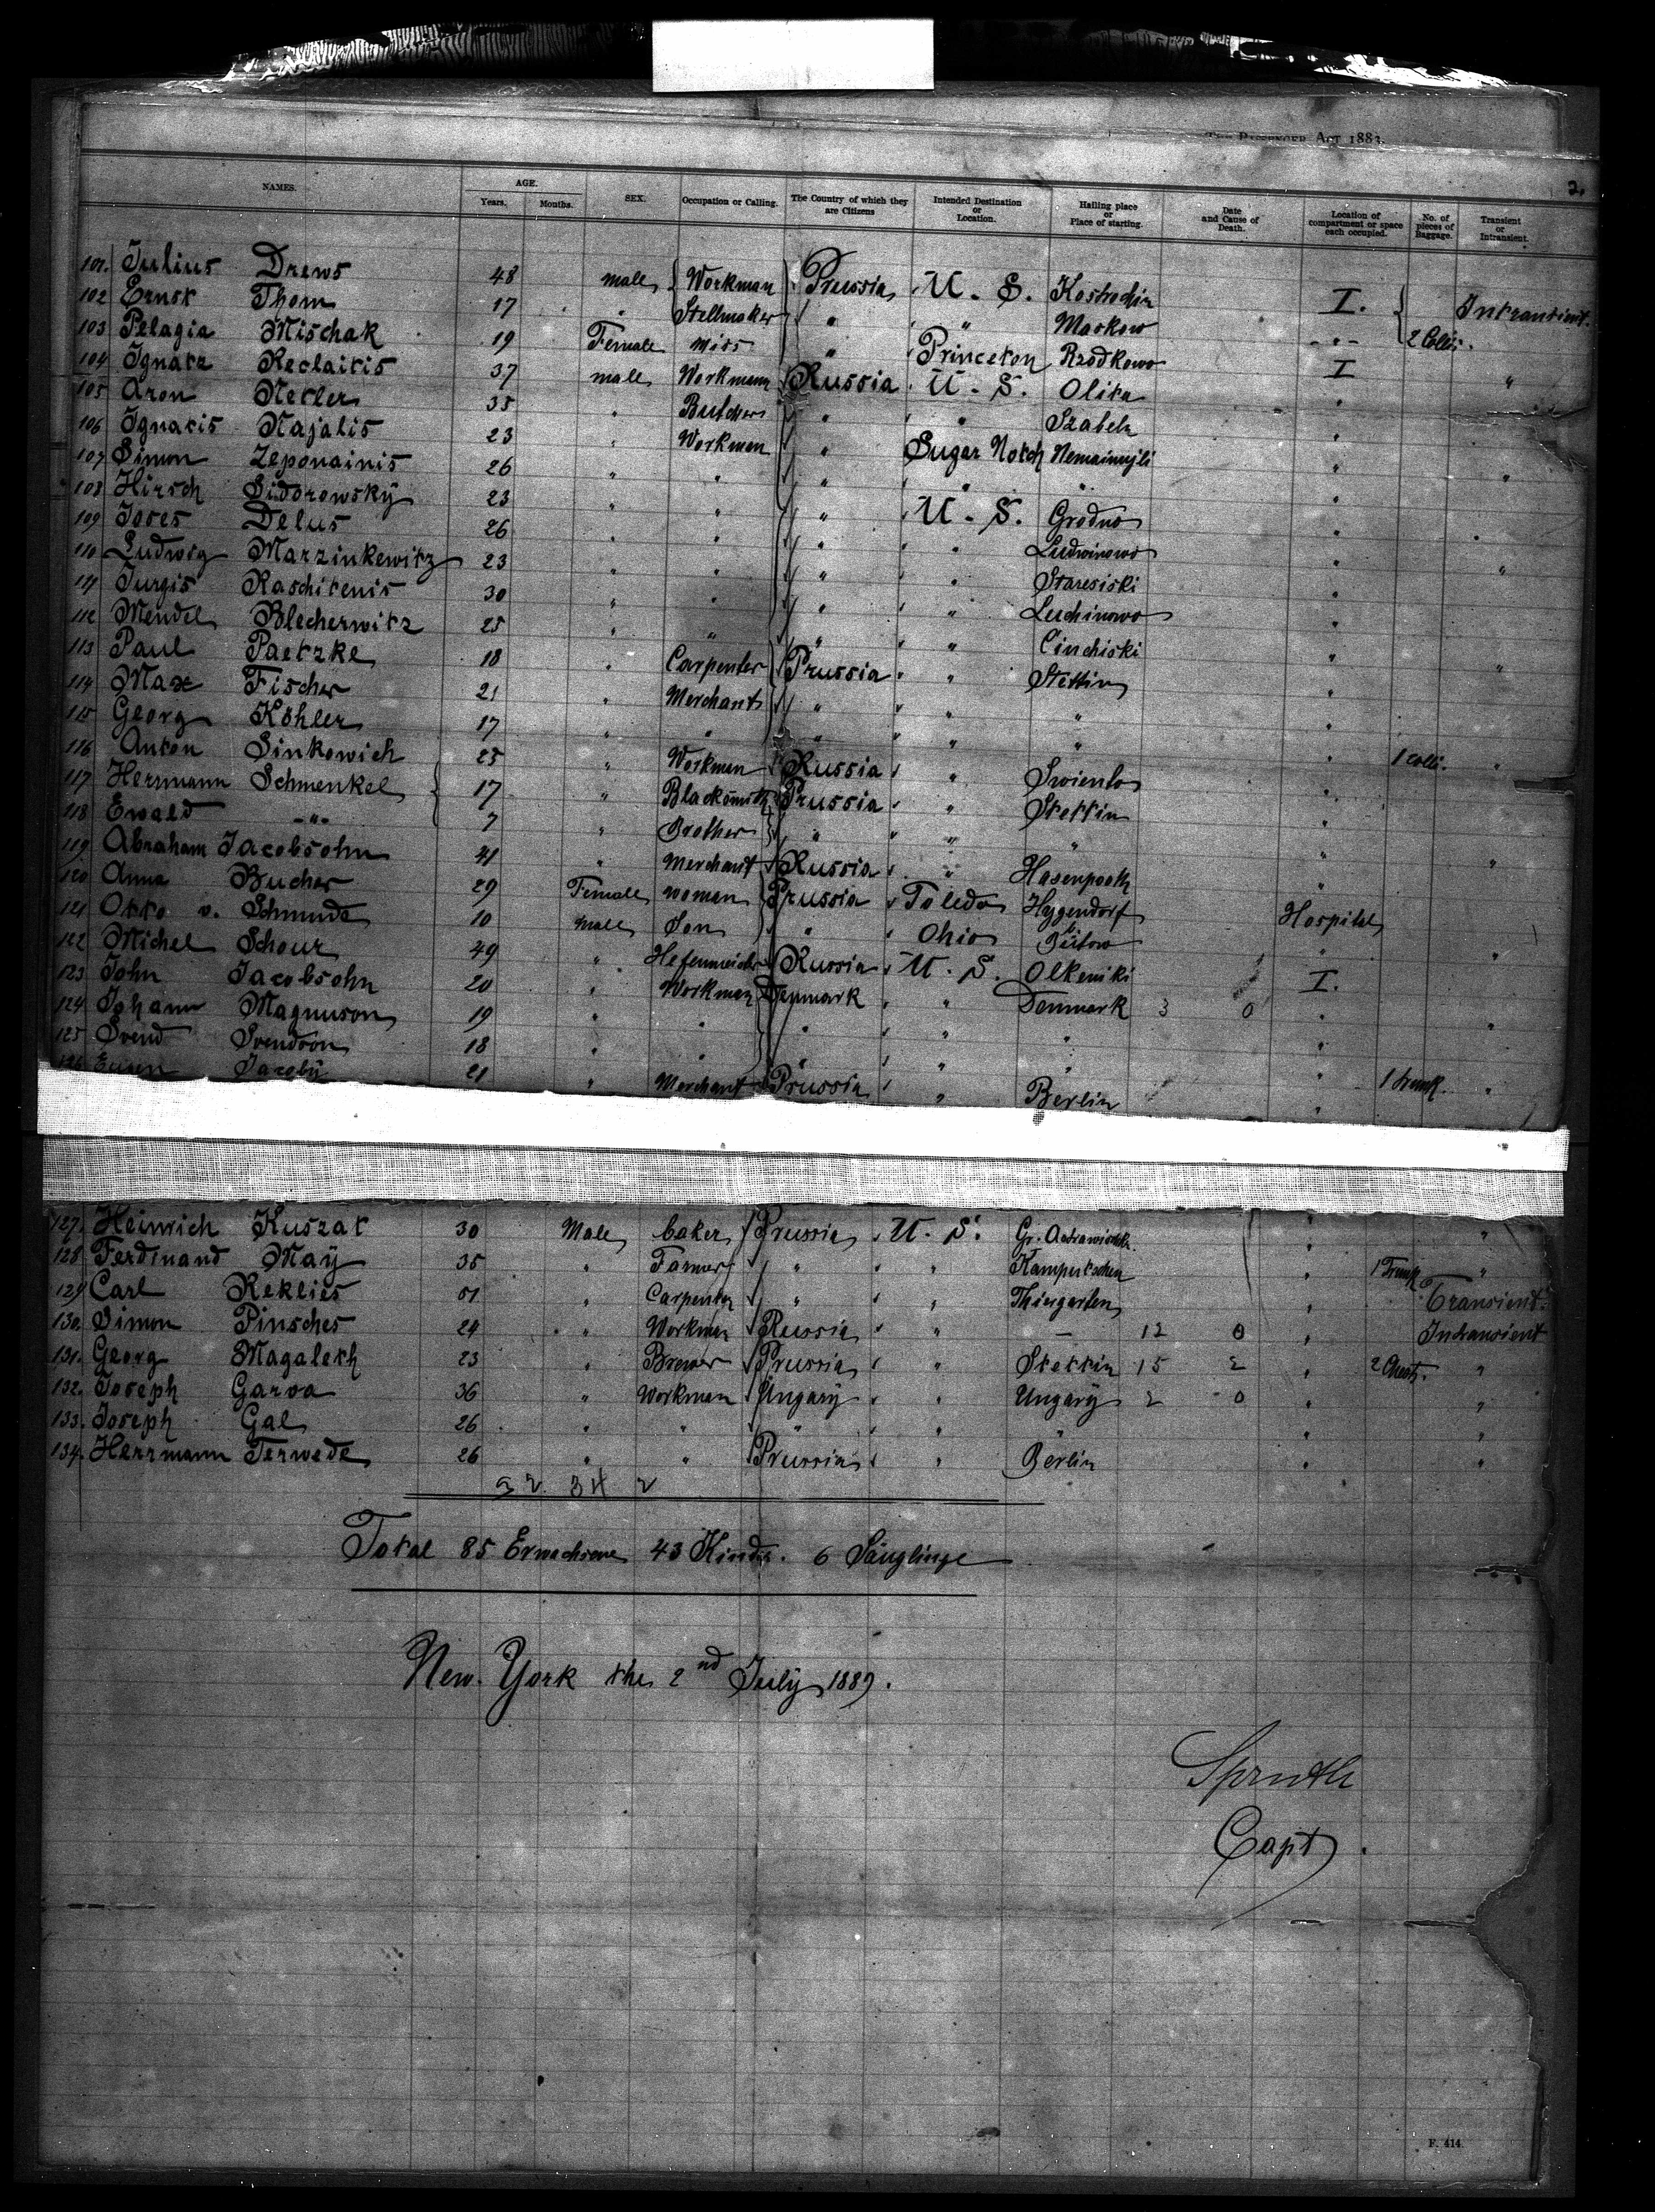 Act 1883.
2.
NAMES. AGE. Years. Months. SEX. Occupation or Calling. The Country of which they are Citizens Intended Destination or Location. Hailing place or Place of starting. Date and Cause of Death. Location of compartment or space each occupied. No. of pieces of Baggage. Transient or Intransient.
101. Julius Drews 48 male Workman Prussia U. S. I. Intransient.
102 Ernst Thom 17 " Stellmaker " " Maskow
103 Pelagia Mischak 19 Female miss " Princeton Rzodkowo -"- 2 Colli.
104 Ignatz Reclaitis 37 male Workman Russia U. S. Olita I "
105 Aron Netler 35 " Butcher " " "
106 Ignatis Najalis 23 " Workman " Sugar Notch "
107 Simon Zeponainis 26 " " " " " " "
108 Hirsch Sidorowsky 23 " " " U. S. Grodno "
109 Joses Delus 26 " " " " Ludwinowo " "
110 Ludwig Marzinkewitz 23 " " " " Staresiski " "
111 Jurgis Raschitenis 30 " " " " Luchinowo "
112 Mendel Blecherwitz 25 " " " " Cinchiski "
113 Paul Paetzke 18 " Carpenter Prussia " Stettin " "
114 Max Fischer 21 " Merchant " " " "
115 Georg Köhler 17 " " " " " "
116 Anton Sinkowich 25 " Workman Russia " Swiento " 1 colli. "
117 Herrmann Schmenkel 17 " Blacksmith Prussia " Stettin "
118 Ewald -"- 7 " Brother " " " "
119 Abraham Jacobsohn 41 " Merchant Russia " Hasenpoth " "
120 Anna Bucher 29 Female woman Prussia Toledo Hygendorf Hospital
121 Otto v. Schmude 10 male Son " Ohio Bütow " "
122 Michel Schour 49 " Russia U. S. Olkeniki I.
123 John Jacobsohn 20 " Workman Denmark " Denmark 3 0 " "
124 Johann Magnuson 19 " " " " " "
125 Svend Svendson 18 " " " " " "
126 Jacoby 21 " Merchant Prussia " Berlin " 1 trunk "
127. Heinrich Kuszat 30 Male baker Prussia U. S. Gr. " "
128 Ferdinand May 35 " Farmer " " " 1 Trunk "
129 Carl Reklies 51 " Carpenter " " Thiergarten " Transient.
130. Simon Pinsches 24 " Workman Russia " — 12 0 " Intransient
131. Georg Magaleth 23 " Brewer Prussia " Stettin 15 2 " 2 "
132. Joseph Garva 36 " Workman Ungary " Ungary 2 0 " "
133. Joseph Gal 26 " " " " " " "
134. Herrmann Terwede 26 " " Prussia " Berlin " "
92 34 2
Total 85 Erwachsene 43 Kinder. 6 Säuglinge
New. York the 2nd July 1889.
Spruth
Capt.
F. 414.